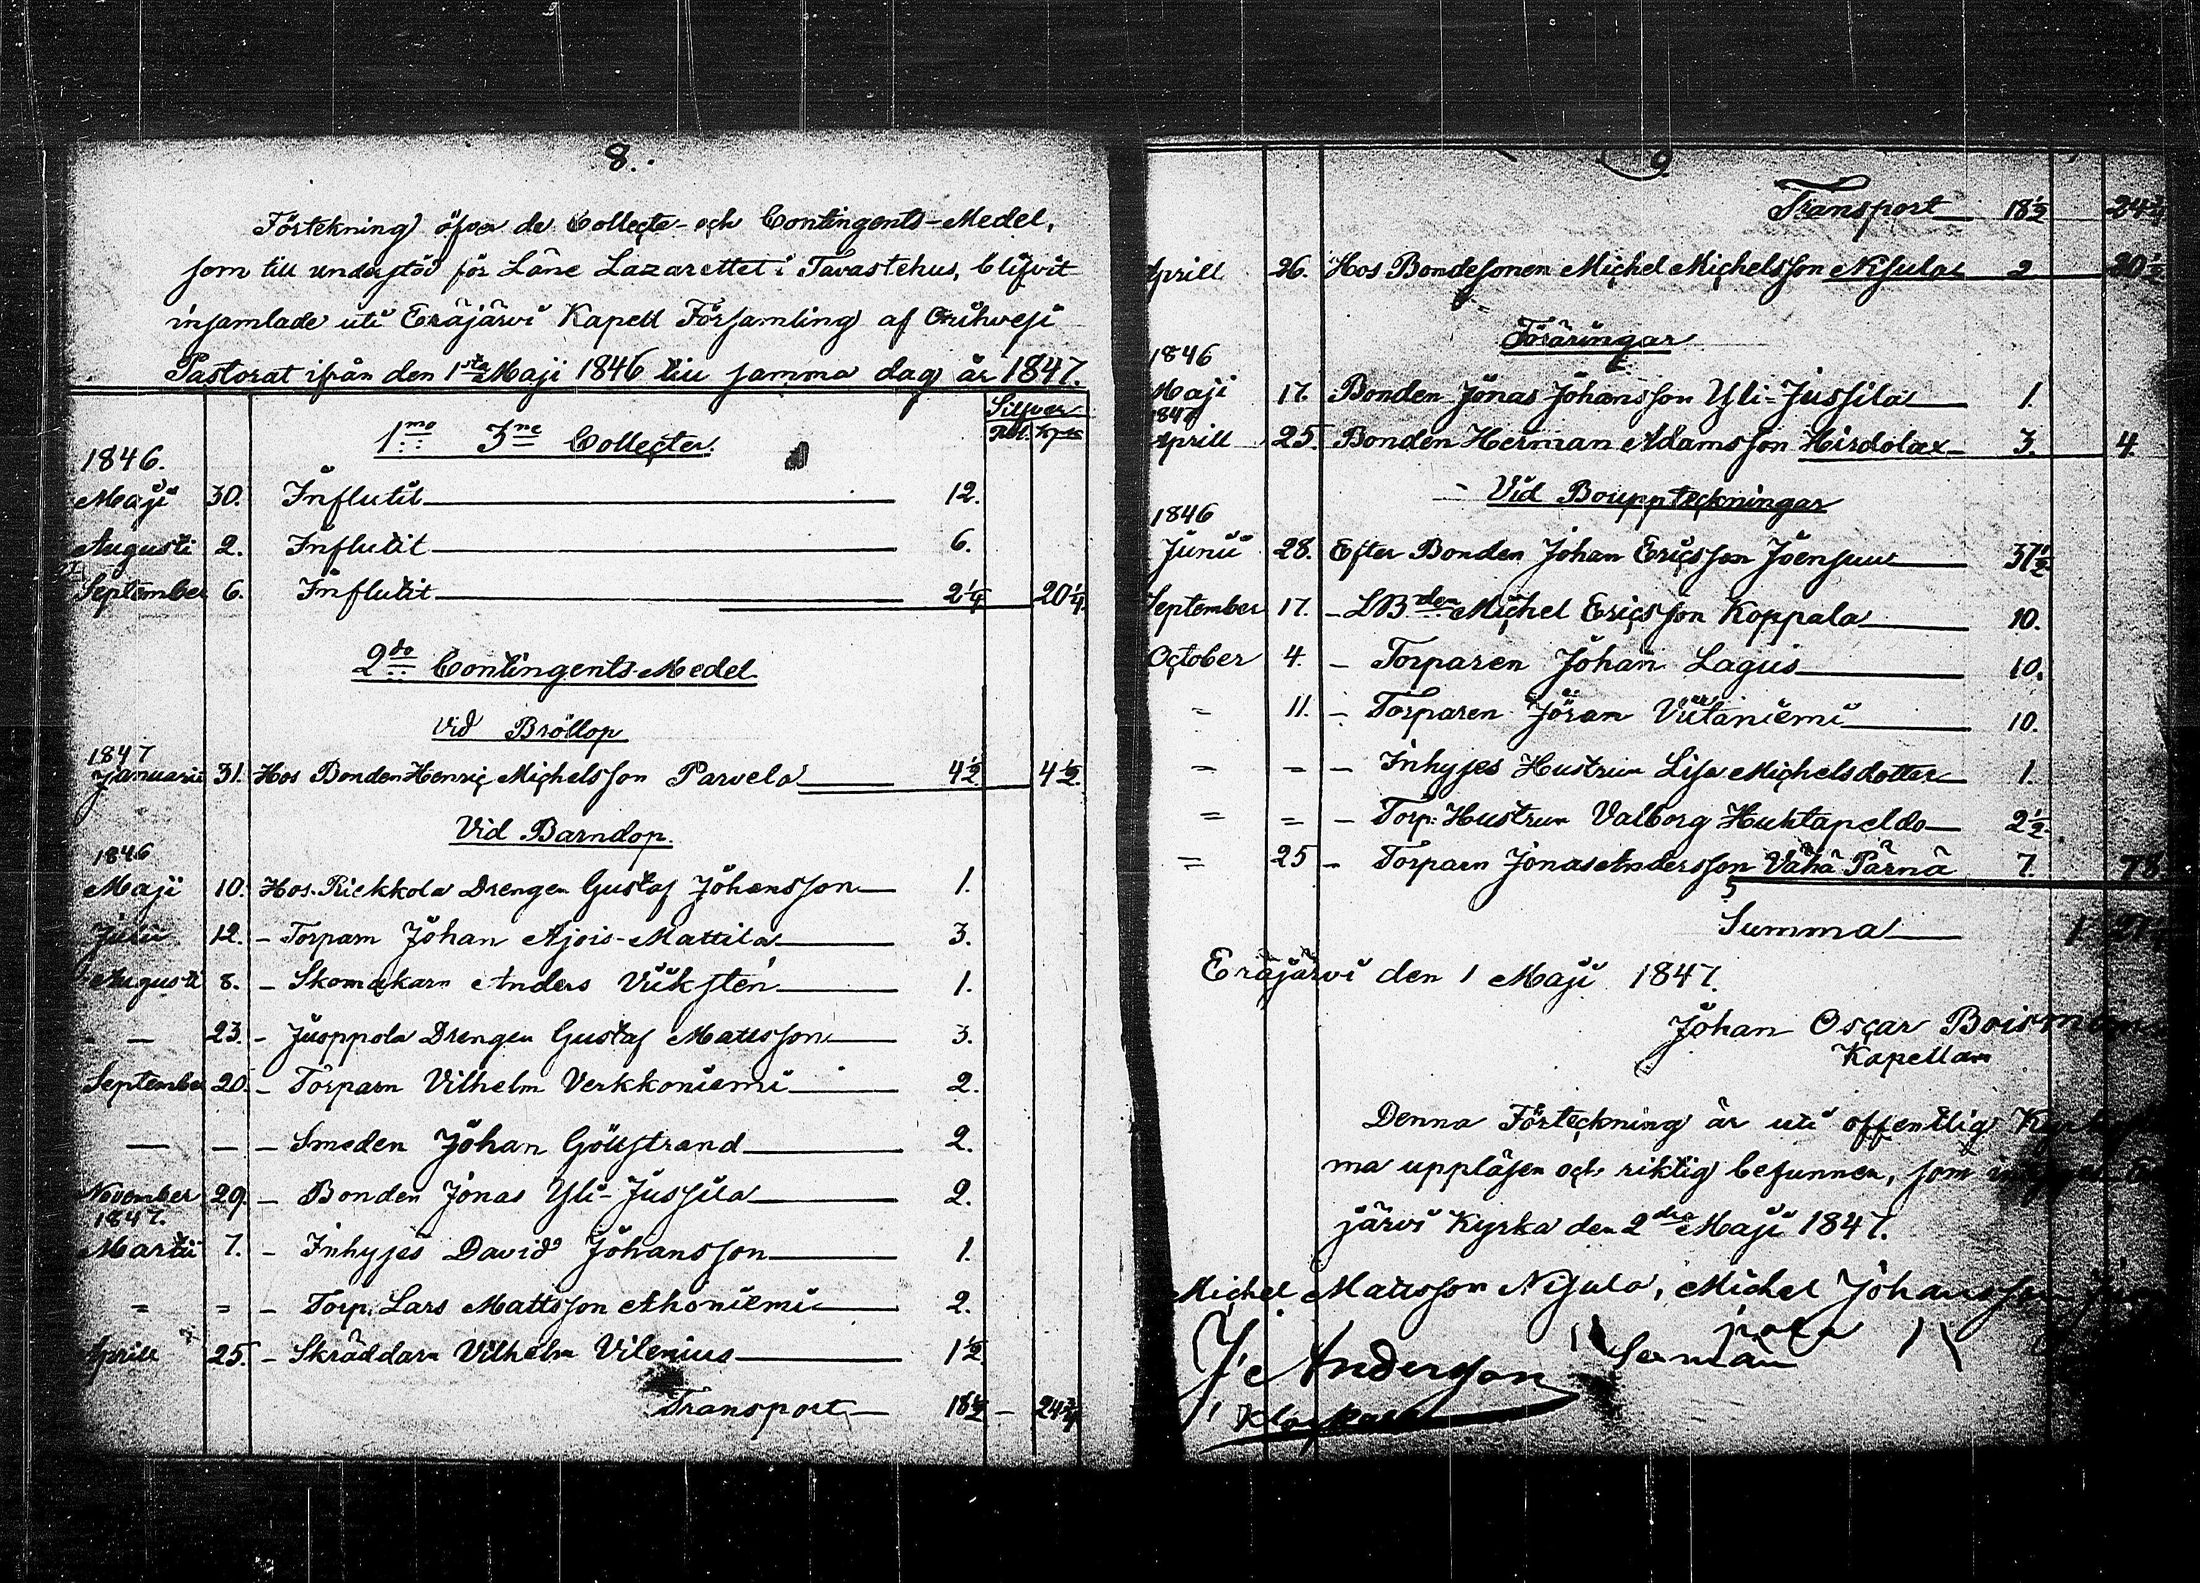 8.
Förtekning öfver de Collecte- och Contingents-Medel,
som till understöd för Läns Lazarettet i Tavastehus, blifvit
insamlade uti Eräjärvi Kapell Församling af Orihwesi
Pastorat ifrån den 1sta Maji 1846 till samma dag år 1847.
Silfver
Rub. Kpk
1mo 3ne Collecter.
1846.
Maji 30. Influtit 12.
Augusti 2. Influtit 6.
September 6. Influtit 2 1/4 20 1/4.
2do Contingents-Medel
Vid Bröllop
1847
Januarii 31. Hos Bonden Henric Michelsson Parvela 4 1/2 4 1/2.
Vid Barndop.
1846
Maji 10. Hos Riekkola Drengen Gustaf Johansson 1.
Junii 12. - Torparn Johan Ajois-Mattila 3.
Augusti 8. - Skomakarn Anders Viiksten 1.
— 23. - Juoppola Drengen Gustaf Mattsson 3.
September 20. - Torparn Vilhelm Verkkoniemi 2.
— — - Smeden Johan Göllstrand 2.
November 29. - Bonden Jonas Yli-Jussila 2.
1847.
Martii 7. - Inhyses David Johansson 1.
= = - Torp. Lars Mattsson Ahoniemi 2.
Aprill 25. - Skräddarn Vilhelm Vilenius 1 1/2
Transport 18 1/2 — 24 3/4
9
Transport 18 1/2 24 3/4
Aprill 26. Hos Bondesonen Michel Michelsson Nisula 2 20 1/2
Föräringar
1846
Maji 17. Bonden Jonas Johansson Yli-Jussila 1.
1847
Aprill 25. Bonden Herman Adamsson Hirdolax 3. 4.
Vid Bouppteckningar
1846
Junii 28. Efter Bonden Johan Ericsson Joensuu 37 1/2
September 17. - LBden Michel Ericsson Koppala 10.
October 4. - Torparen Johan Lagus 10.
= 11. - Torparen Jöran Viitaniemi 10.
= = - Inhyses Hustrun Lisa Michelsdotter 1.
= = - Torp: Hustrun Valborg Huhtapeldo 2 1/2.
= 25 - Torparn Jonas Andersson Vähä Pärnä 7. 78
Summa 1 27
Eräjärvi den 1 Maji 1847.
Johan Oscar Boisman
Kapellan
Denna Förteckning är uti offentlig
ma uppläsen och riktig befunnen, som
järvi Kyrka den 2dra Maji 1847.
Michel Mattsson Nisula, Michel Johansson
Anderson
Klockare